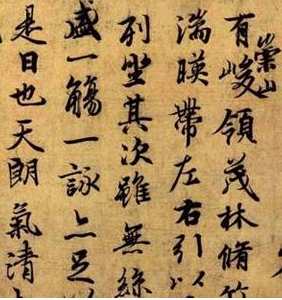 有崇山峻領茂林脩竹
湍暎帶左右引以
列坐其次雖無絲
盛一觴一詠亦足以
是日也天朗氣清